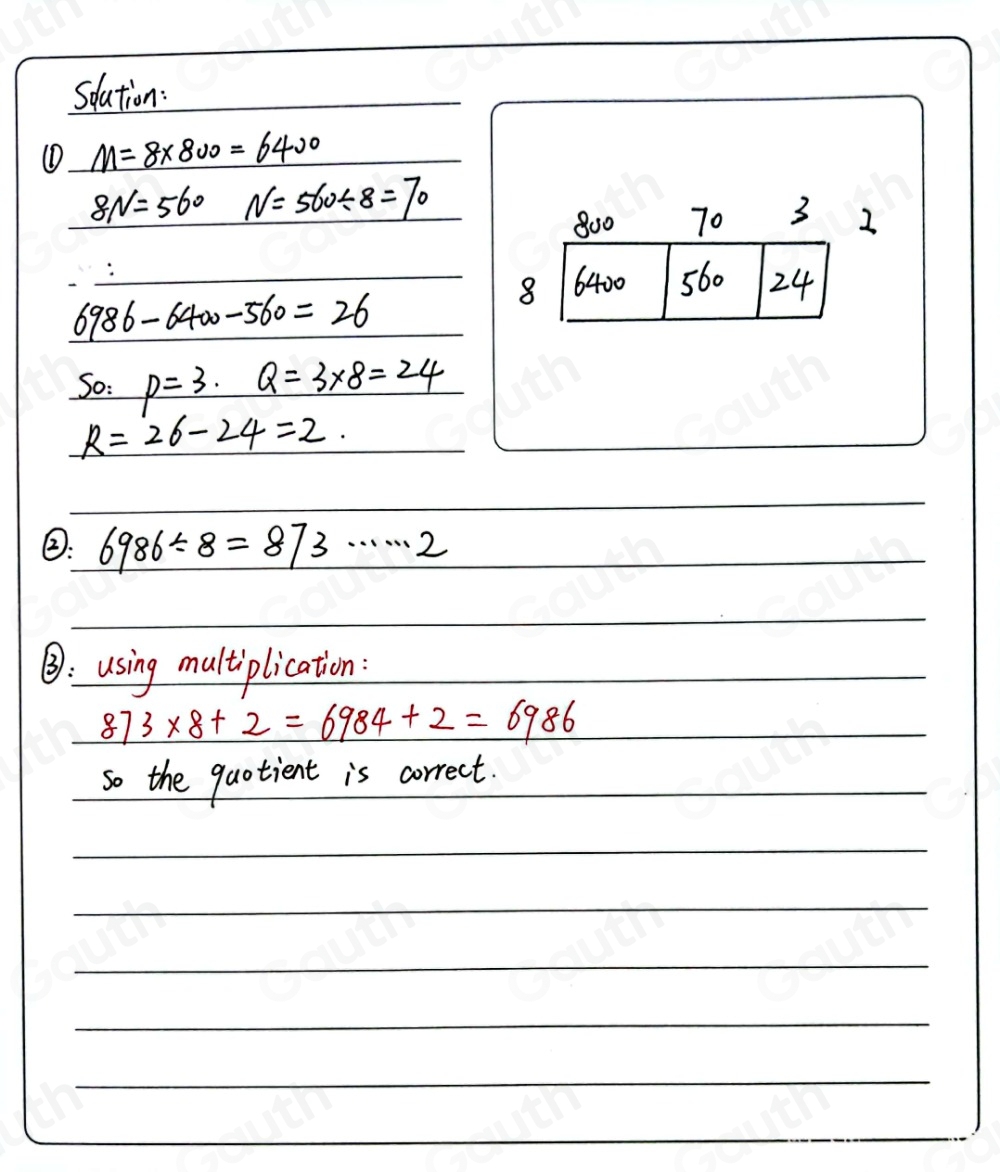 Solution:
① M=8×800=6400
8N=560 N=560÷8=70
:
6986-6400-560=26
So: p=3. Q=3×8=24
R=26-24=2.
800 70 3 2
8 6400 560 24
②: 6986÷8=873 ······2
③: using multiplication:
873×8+2=6984+2=6986
so the quotient is correct.
Gauth